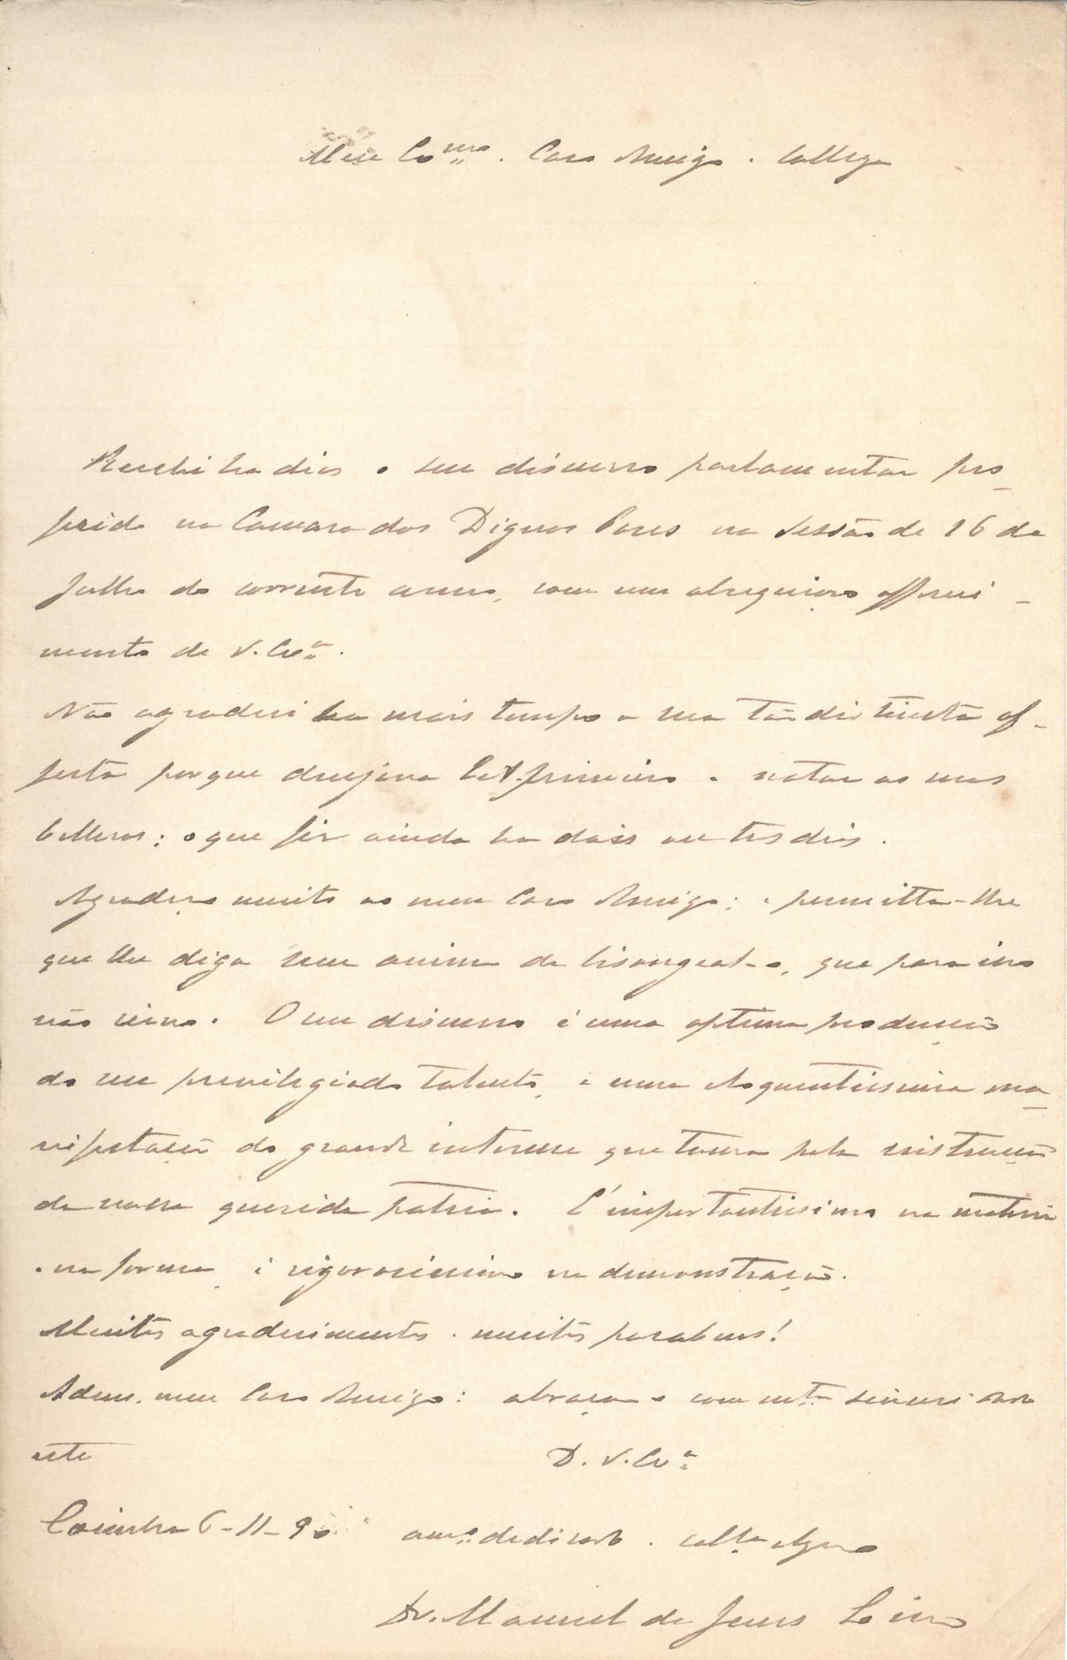 Meu Ex.mo Caro Amigo e Collega
Recebi ha dias o seu discurso parlamentar pro-
ferido na Camara dos Dignos Pares na Sessão de 16 de
Julho do corrente anno, com um obsequioso offereci-
mento de V. Ex.a.
Não agradeci ha mais tempo a sua tão distincta of-
ferta porque desejava lel-o primeiro e notar as suas
bellezas; o que fiz ainda ha dois ou tres dias.
Agradeço muito ao meu Caro Amigo; e permitta-lhe
que lhe diga sem animo de lisongeal-o, que para isso
não sirvo. O seu discurso é uma optima producção
do seu previlegiado talento, e uma eloquentissima ma-
nifestação do grande interesse que toma pela instrucção
da nossa querida patria. É importantissimo na materia
e na forma, e rigorosissimo na demonstração.
Muitos agradecimentos e muitos parabens!
Adeus, meu Caro Amigo: abraça-o com mt.a
D. V. Ex.a
Coimbra 6-11-9
am.o dedicado e coll.a
Dr. Manuel de Jesus Lino